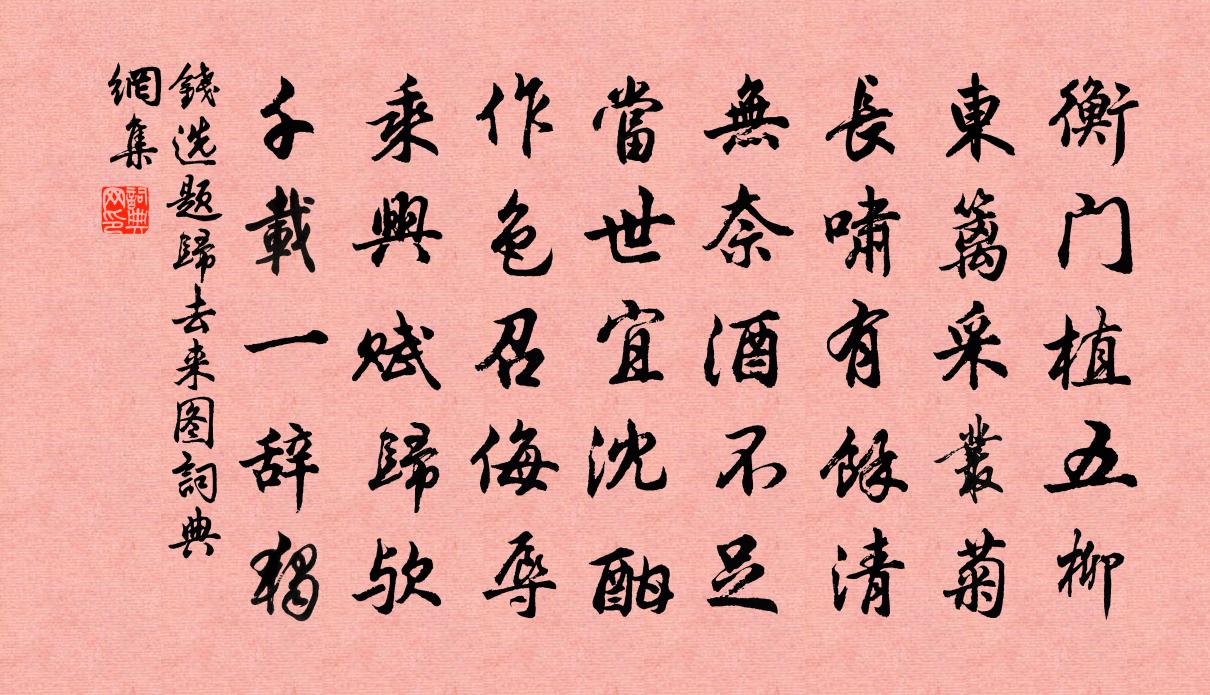 衡门植五柳
東篱采叢菊
長嘯有餘清
無奈酒不足
當世宜沈酣
作色召侮辱
乘興赋歸欤
千載一辞獨
錢选题歸去来图詞典
網集
詞典网印